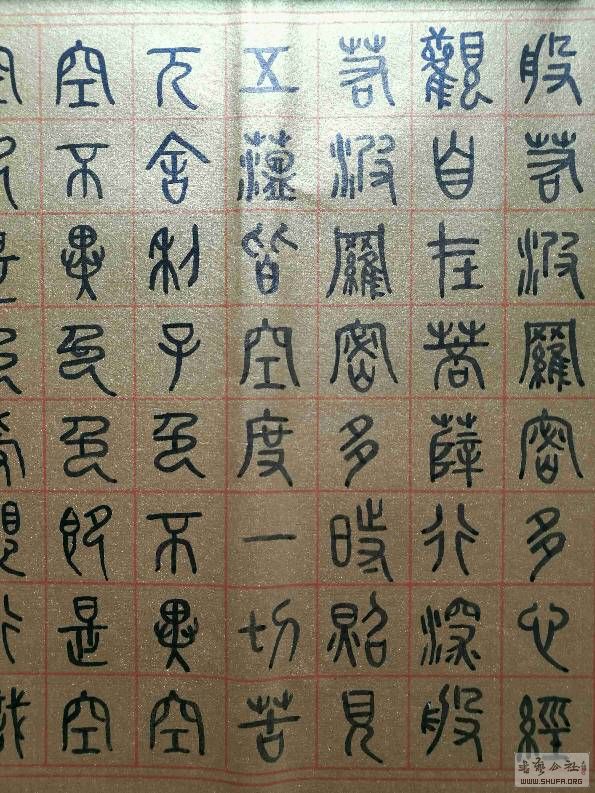 般若波羅密多心經
觀自在菩薩行深般
若波羅密多時照見
五蘊皆空度一切苦
厄舍利子色不異空
空不異色色即是空
WWW.SHUFA.ORG